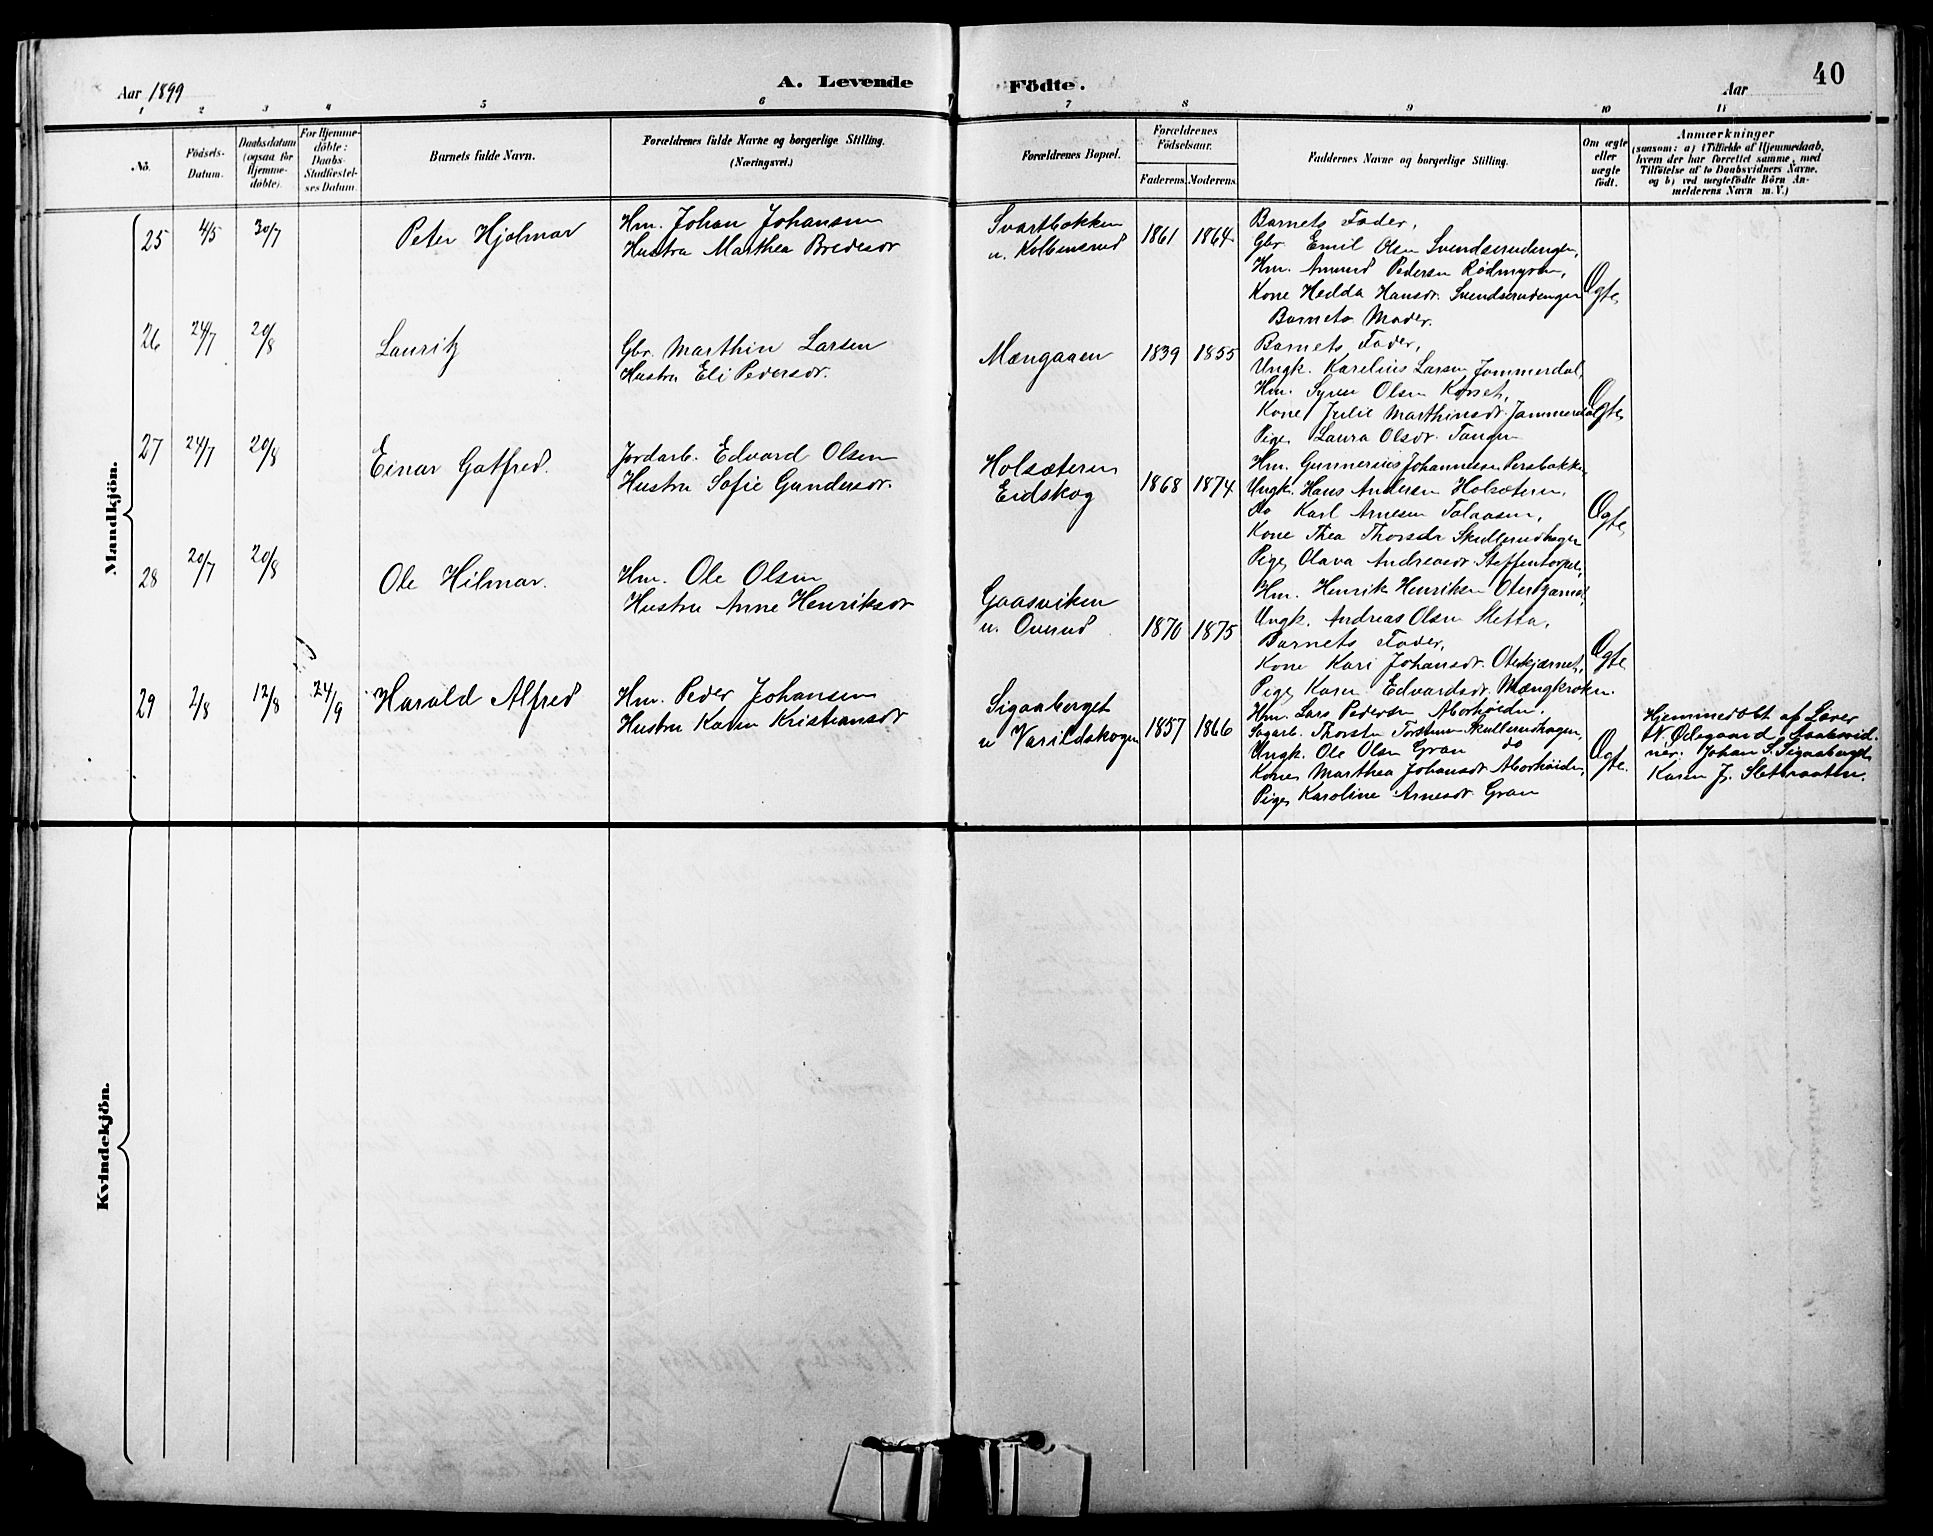 Aar 1899
A. Levende Födte.
Aar
40
1 2 3 4 5 6 7 8 9 10 11
No.
Födsels-
Datum.
Daabsdatum
(ogsaa for
Hjemme-
döbte).
For Hjemme-
döbte:
Daabs-
Stadfæstel-
ses Datum.
Barnets fulde Navn.
Forældrenes fulde Navne og borgerlige Stilling.
(Næringsvei.)
Forældrenes Bopæl.
Forældrenes
Födselsaar.
Faderens. Moderens.
Faddernes Navne og borgerlige Stilling.
Om ægte
eller
uægte
født.
Anmærkninger
(saasom: a) i Tilfælde af Hjemmedaab,
hvem der har forrettet samme, med
Tilföielse af to Daabsvidners Navne,
og b) ved uægtefödte Börn An-
melderens Navn m. V.)
Mandkjön.
25 4/5 30/7
Peter Hjalmar
Hm. Johan Johansen
Hustru Marthea Bredesdr
Svartbakken
u. Kolbensrud
1861 1864
Barnets Fader,
Gbr Emil Olsen Svendserudengen,
Hm. Amund Pedersen Rødmyren,
Kone Hedda Hansdr. Svendserudengen
Barnets Moder.
Ægte
26 24/7 20/8
Lauritz
Gbr. Marthin Larsen
Hustru Eli Pedersdr.
Mængaaen
1839 1855
Barnets Fader,
Ungk. Karelius Larsen Jammerdal,
Hm. Syver Olsen
Kone Julie Marthinsdr. Jammerdal
Pige Laura Olsdr. Tangen
Ægte
27 24/7 20/8
Einar Gotfred.
Jordarb. Edvard Olsen
Hustru Sofie Gundersdr.
Holsæteren
Eidskog
1868 1874
Hm. Gunnerius Johannesen Persbakken
Ungk. Hans Andersen Holsæteren,
do Karl Arnesen
Kone Thea Thorsdr Skullerudhagen
Pige Olava Andreasdr.
Ægte
28 20/7 20/8
Ole Hilmar.
Hm. Ole Olsen
Hustru Anne Henriksdr
Gaasviken
u. Overud
1870 1875
Hm. Henrik Henriksen
Ungk. Andreas Olsen Sletta,
Barnets Fader,
Kone Kari Johansdr. Oterkjærnet,
Pige Karen Edvardsdr. Mængkroken.
Ægte
29 2/8 12/8 24/9
Harald Alfred
Hm. Peder Johansen
Hustru Karen Kristiansdr
Sigaaberget
u Varildskogen
1857 1866
Hm. Lars Pedersen Aborhøiden,
Sagarb. Thorsten Torstensen Skullerudhagen,
Ungk. Ole Olsen Gran do
Kone Marthea Johansdr. Aborhøiden,
Pige Karoline Arnesdr. Gran
Ægte.
Hjemmedøbt af Lærer
N. Ødegaard Daabsvid-
ner: Johan S. Sigaaberget,
Karen J. Sletbraaten.
Kvindekjön.